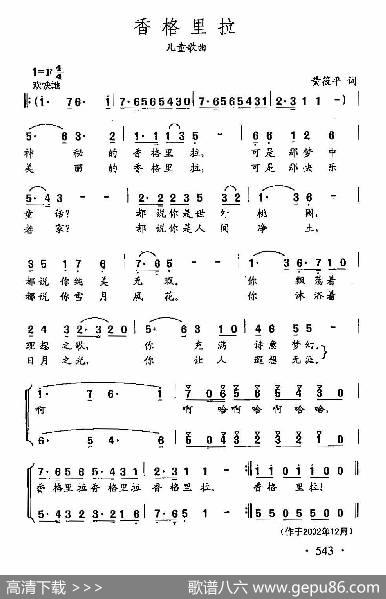 香格里拉
儿童歌曲
1=F 4/4
欢快地
黄筱平 词
‖:(1· 7 6· 1 | 7·6565430 | 7·6565431 | 2·311 - - ) |
5· 6 3 - | 1·11135 - | 6 6 1 2 6 |
神秘的 香格里拉, 可是那梦中
美丽的 香格里拉, 可是那快乐
5·43 - - | 2·22356 | 1·36 - |
童话? 都说你是世外桃园,
老家? 都说你是人间净土,
3 5 1 5 1 7 | 7·65 - - | 1·3 6·710 |
都说你纯美无瑕。 你飘荡着
都说你雪月风花。 你沐浴着
2 4 3 2·320 | 5·6 53 - | 2·4 56 0 |
理想之歌, 你充满诗意梦幻。
日月之光, 你让人遐想无涯。
1· 7 6· 1 | 7 06 5 6 5 4 3 0 |
啊 啊哈啊哈啊哈哈,
6· 5 5 4· 6 | 5 0 4 3 4 3 2 3 2 1 0 |
7·6 5 6 5·4 3 1 | 2·3 1 1 - - :‖ 1 1 0 1 1 0 0 ‖
香格里拉香格里拉 香格里拉。 香格里拉!
5·4 3 2 3·2 1 6 | 7·1 5 5 - - :‖ 5 5 0 1 1 0 0 ‖
(作于2002年12月)
· 543 ·
高清下载 >>>
歌谱八六 www.gepu86.com